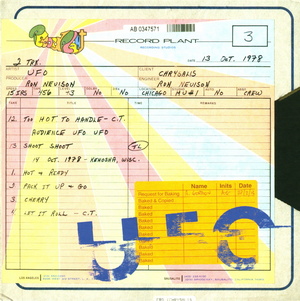 AB 0347571
RECORD PLANT
RECORDING STUDIOS
3
2 TRK
DATE 13 OCT. 1978
ARTIST
CLIENT
UFO
CHRYSALIS
PRODUCER
ENGINEER
RON NEVISON
RON NEVISON
15 IPS 456 +3 No No CHICAGO MU#1 No CREW
TAKE TITLE TIME REMARKS
12. TOO HOT TO HANDLE - C.T.
AUDIENCE UFO UFO
13 SHOOT SHOOT
14 OCT. 1978 - KENOSHA, WISC.
1 HOT & READY
2 PACK IT UP & GO
3 CHERRY
4 LET IT ROLL - C.T.
Name Inits
Required for Baking
Baked & Copied
Baked
Baked
Baked
Baked
Baked
Baked
UFO
LOS ANGELES
SAUSALITO